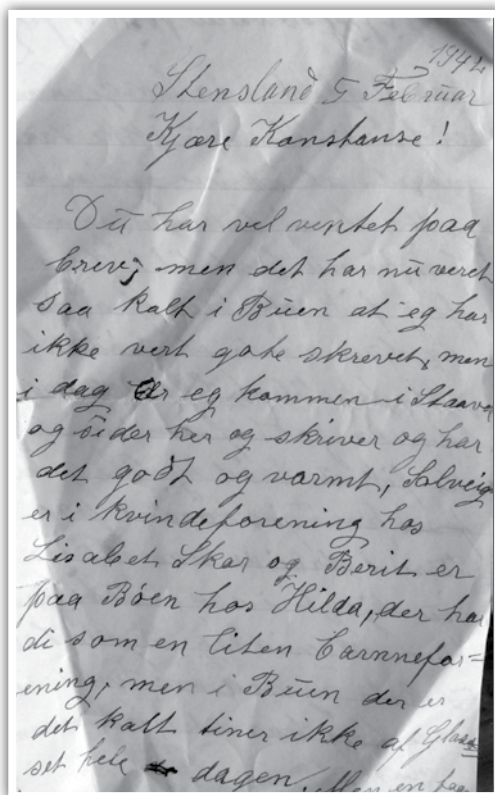 1942
Stensland 5 Februar
Kjære Konstanse!
Dū har vel ventet paa
brev, men det har nū veret
saa kalt i Būen at eg har
ikke vert gote skrevet, men
i dag er eg kommen i Staava
og sider her og skriver og har
det godt og varmt, Solveig
er i kvindeforening hos
Lisabet Skar og Berit er
paa Bøen hos Hilda, der har
di som en liten barnnefor=
ening, men i Būen der er
det kalt tiner ikke af Glass
set hele dagen. Men en